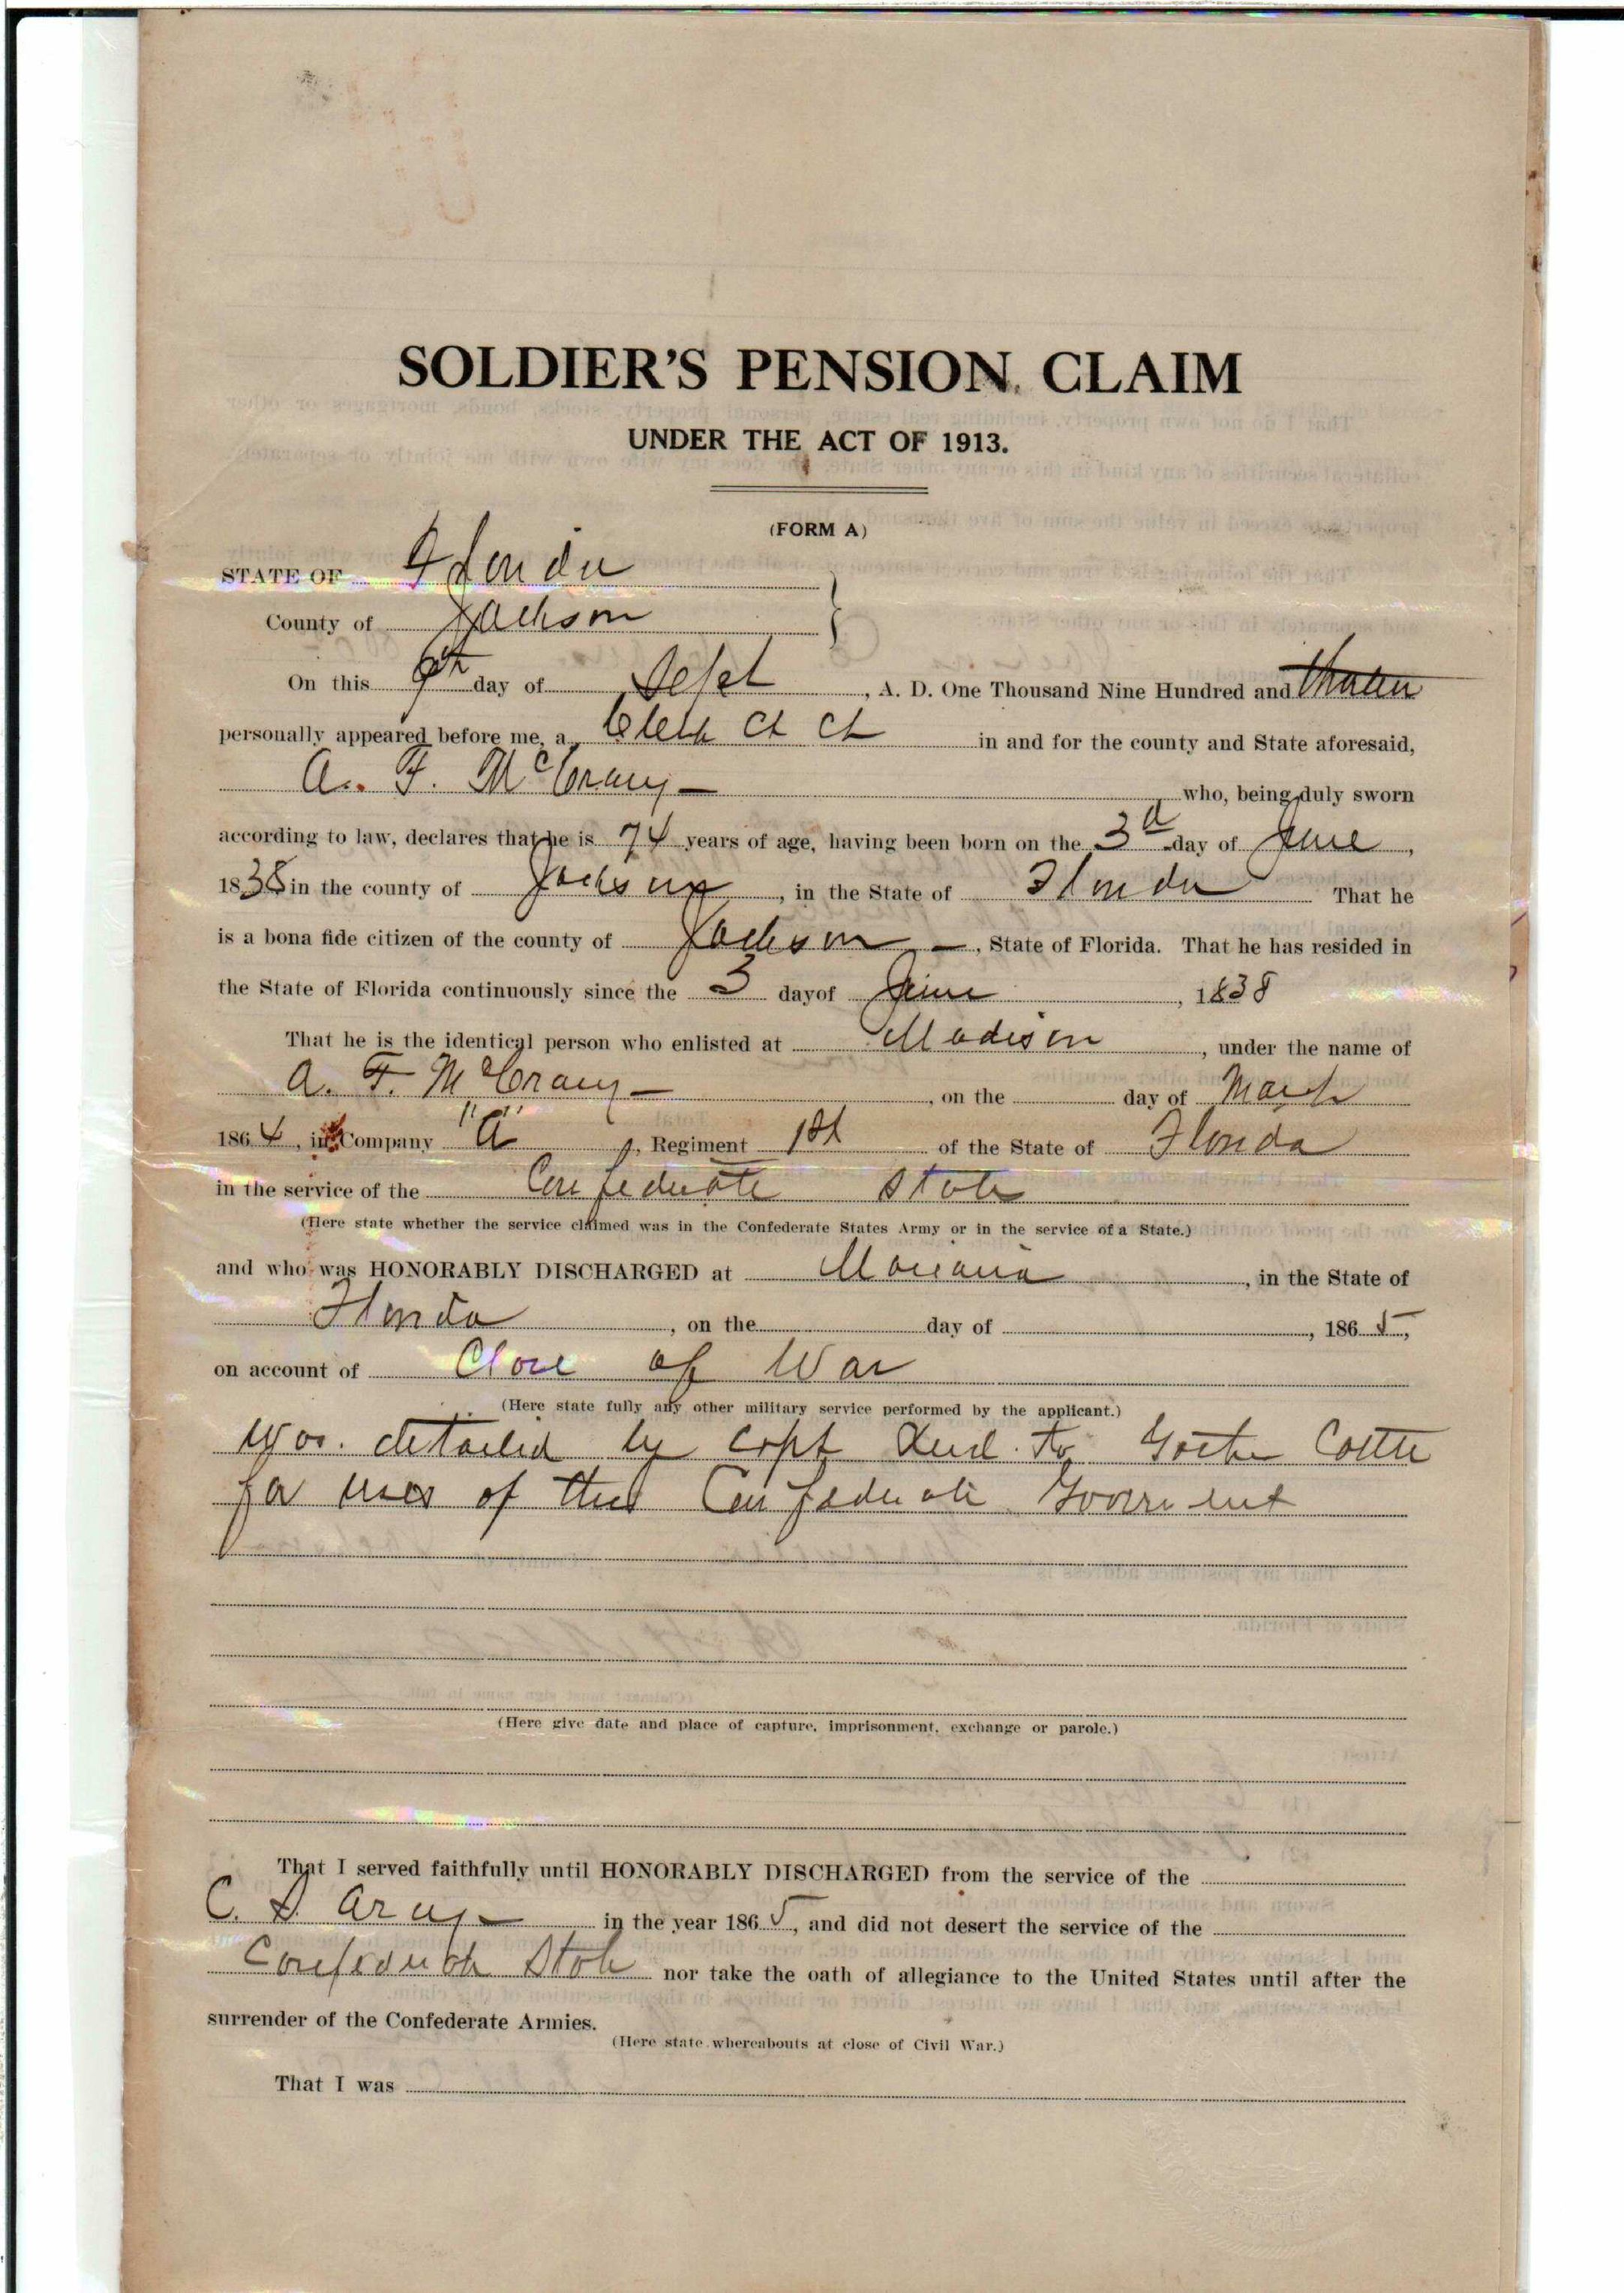 SOLDIER'S PENSION CLAIM
UNDER THE ACT OF 1913.
(FORM A)
STATE OF Florida
County of Jackson
On this 9th day of Sept, A. D. One Thousand Nine Hundred and thirteen
personally appeared before me, a Clerk Ct Ct in and for the county and State aforesaid,
A. F. McCrary who, being duly sworn
according to law, declares that he is 74 years of age, having been born on the 3d day of June,
1838 in the county of Jackson, in the State of Florida That he
is a bona fide citizen of the county of Jackson, State of Florida. That he has resided in
the State of Florida continuously since the 3 day of June, 1838
That he is the identical person who enlisted at Madison, under the name of
A. F. McCrary, on the day of March
1864, in Company "A", Regiment 1st of the State of Florida
in the service of the Confederate State
(Here state whether the service claimed was in the Confederate States Army or in the service of a State.)
and who was HONORABLY DISCHARGED at Mariana, in the State of
Florida, on the day of , 1865,
on account of Close of War
(Here state fully any other military service performed by the applicant.)
Was detailed by Capt to Gather Cattle
for uses of the Confederate Goverment
(Here give date and place of capture, imprisonment, exchange or parole.)
That I served faithfully until HONORABLY DISCHARGED from the service of the
C. S. Army in the year 1865, and did not desert the service of the
Confederate State nor take the oath of allegiance to the United States until after the
surrender of the Confederate Armies.
(Here state whereabouts at close of Civil War.)
That I was